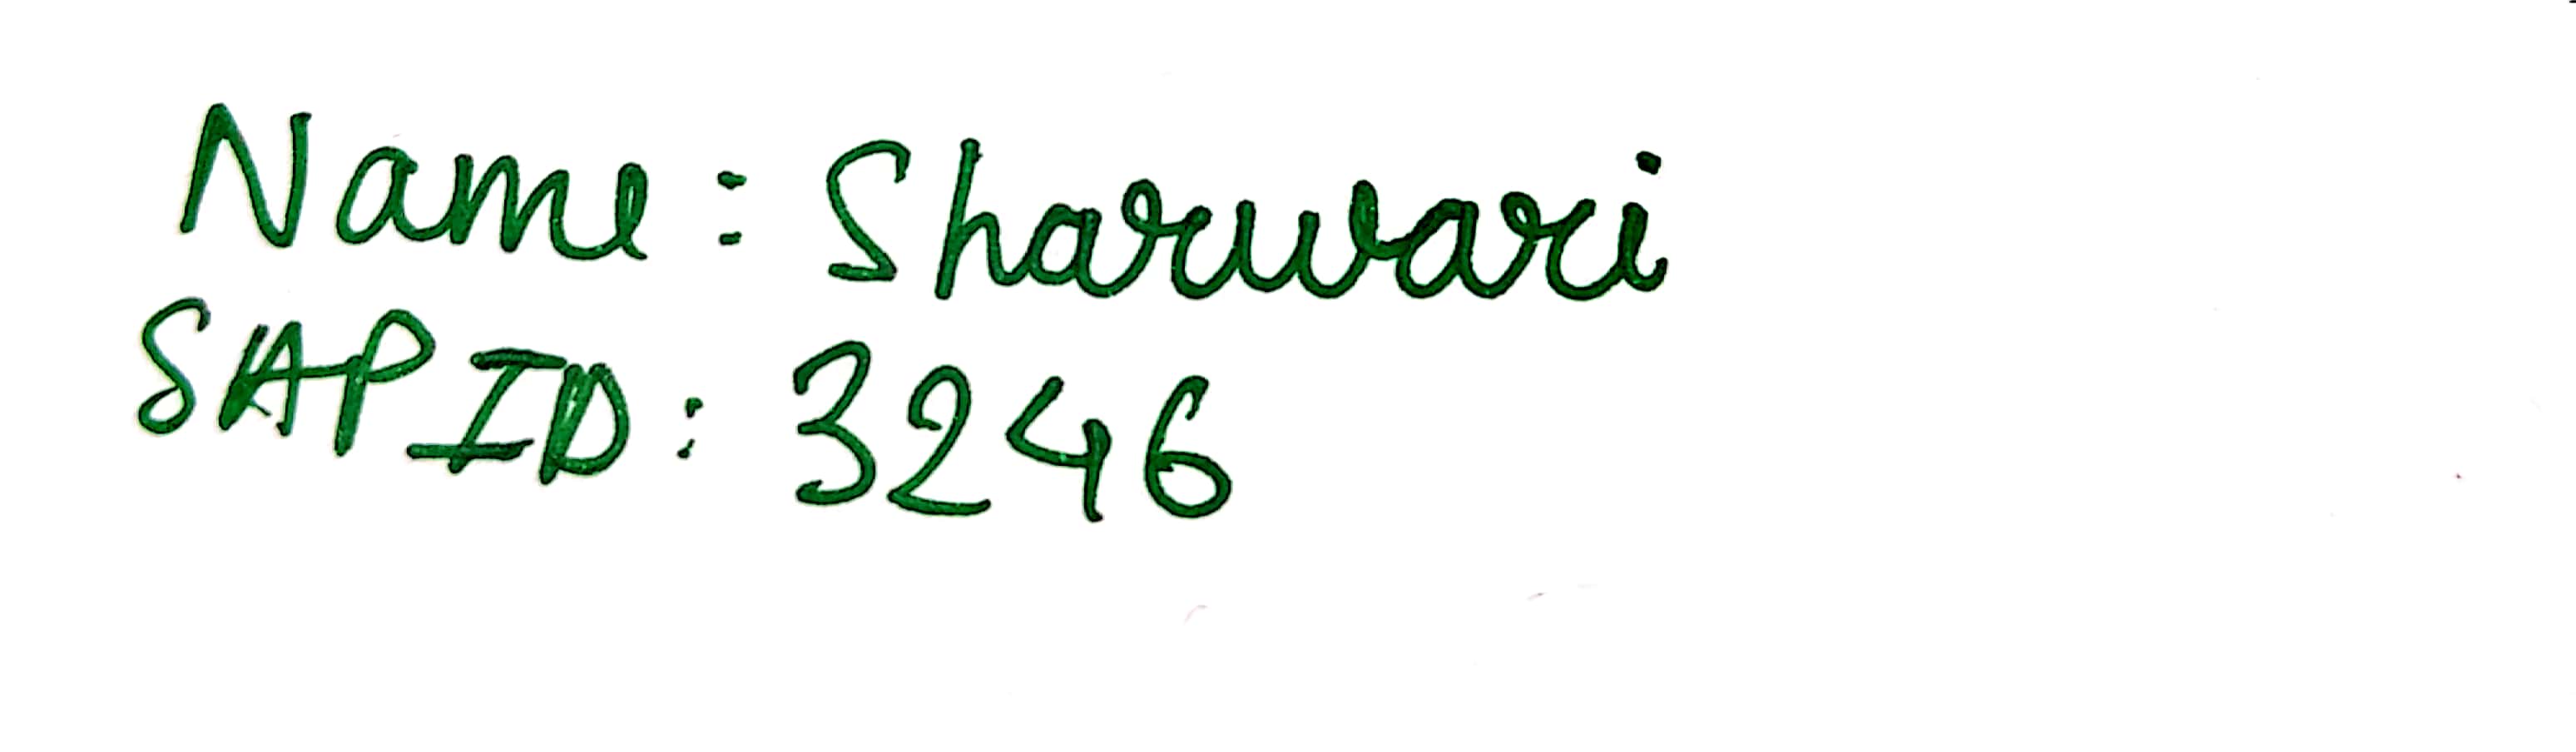 Name: Sharwari
SAP ID: 3246